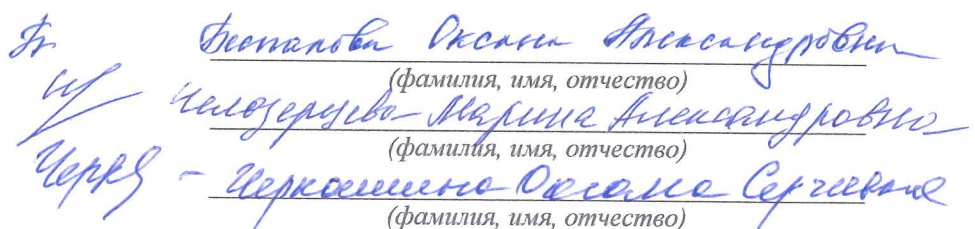 Беспалова Оксана Александровна
(фамилия, имя, отчество)
Марина Александровна
(фамилия, имя, отчество)
Черкашина Оксана Сергеевна
(фамилия, имя, отчество)